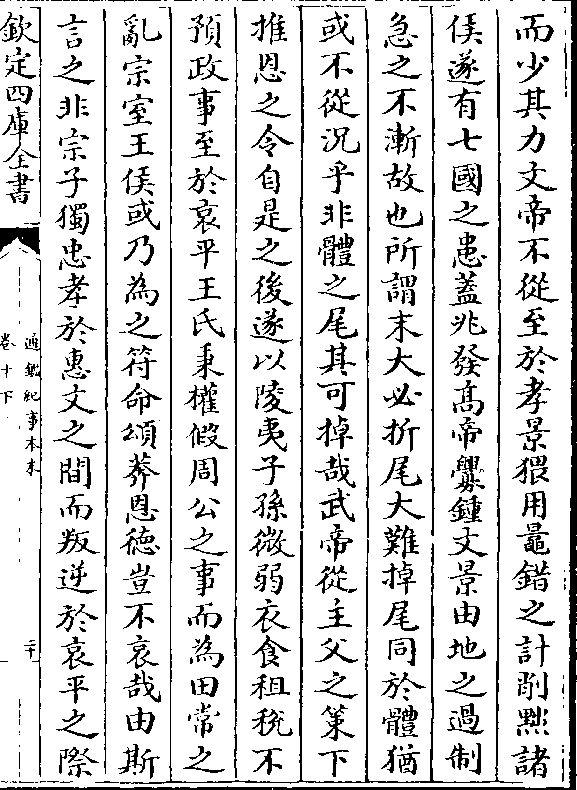 而少其力文帝不從至於孝景猥用鼂錯之計削黜諸
侯遂有七國之患蓋兆發高帝釁鍾文景由地之過制
急之不漸故也所謂末大必折尾大難掉尾同於體猶
或不從況乎非體之尾其可掉哉武帝從主父之策下
推恩之令自是之後遂以陵夷子孫微弱衣食租稅不
預政事至於哀平王氏秉權假周公之事而為田常之
亂宗室王侯或乃為之符命頌莽恩德豈不哀哉由斯
言之非宗子獨忠孝於惠文之間而叛逆於哀平之際
欽定四庫全書
通鑑紀事本末
卷十下
二十